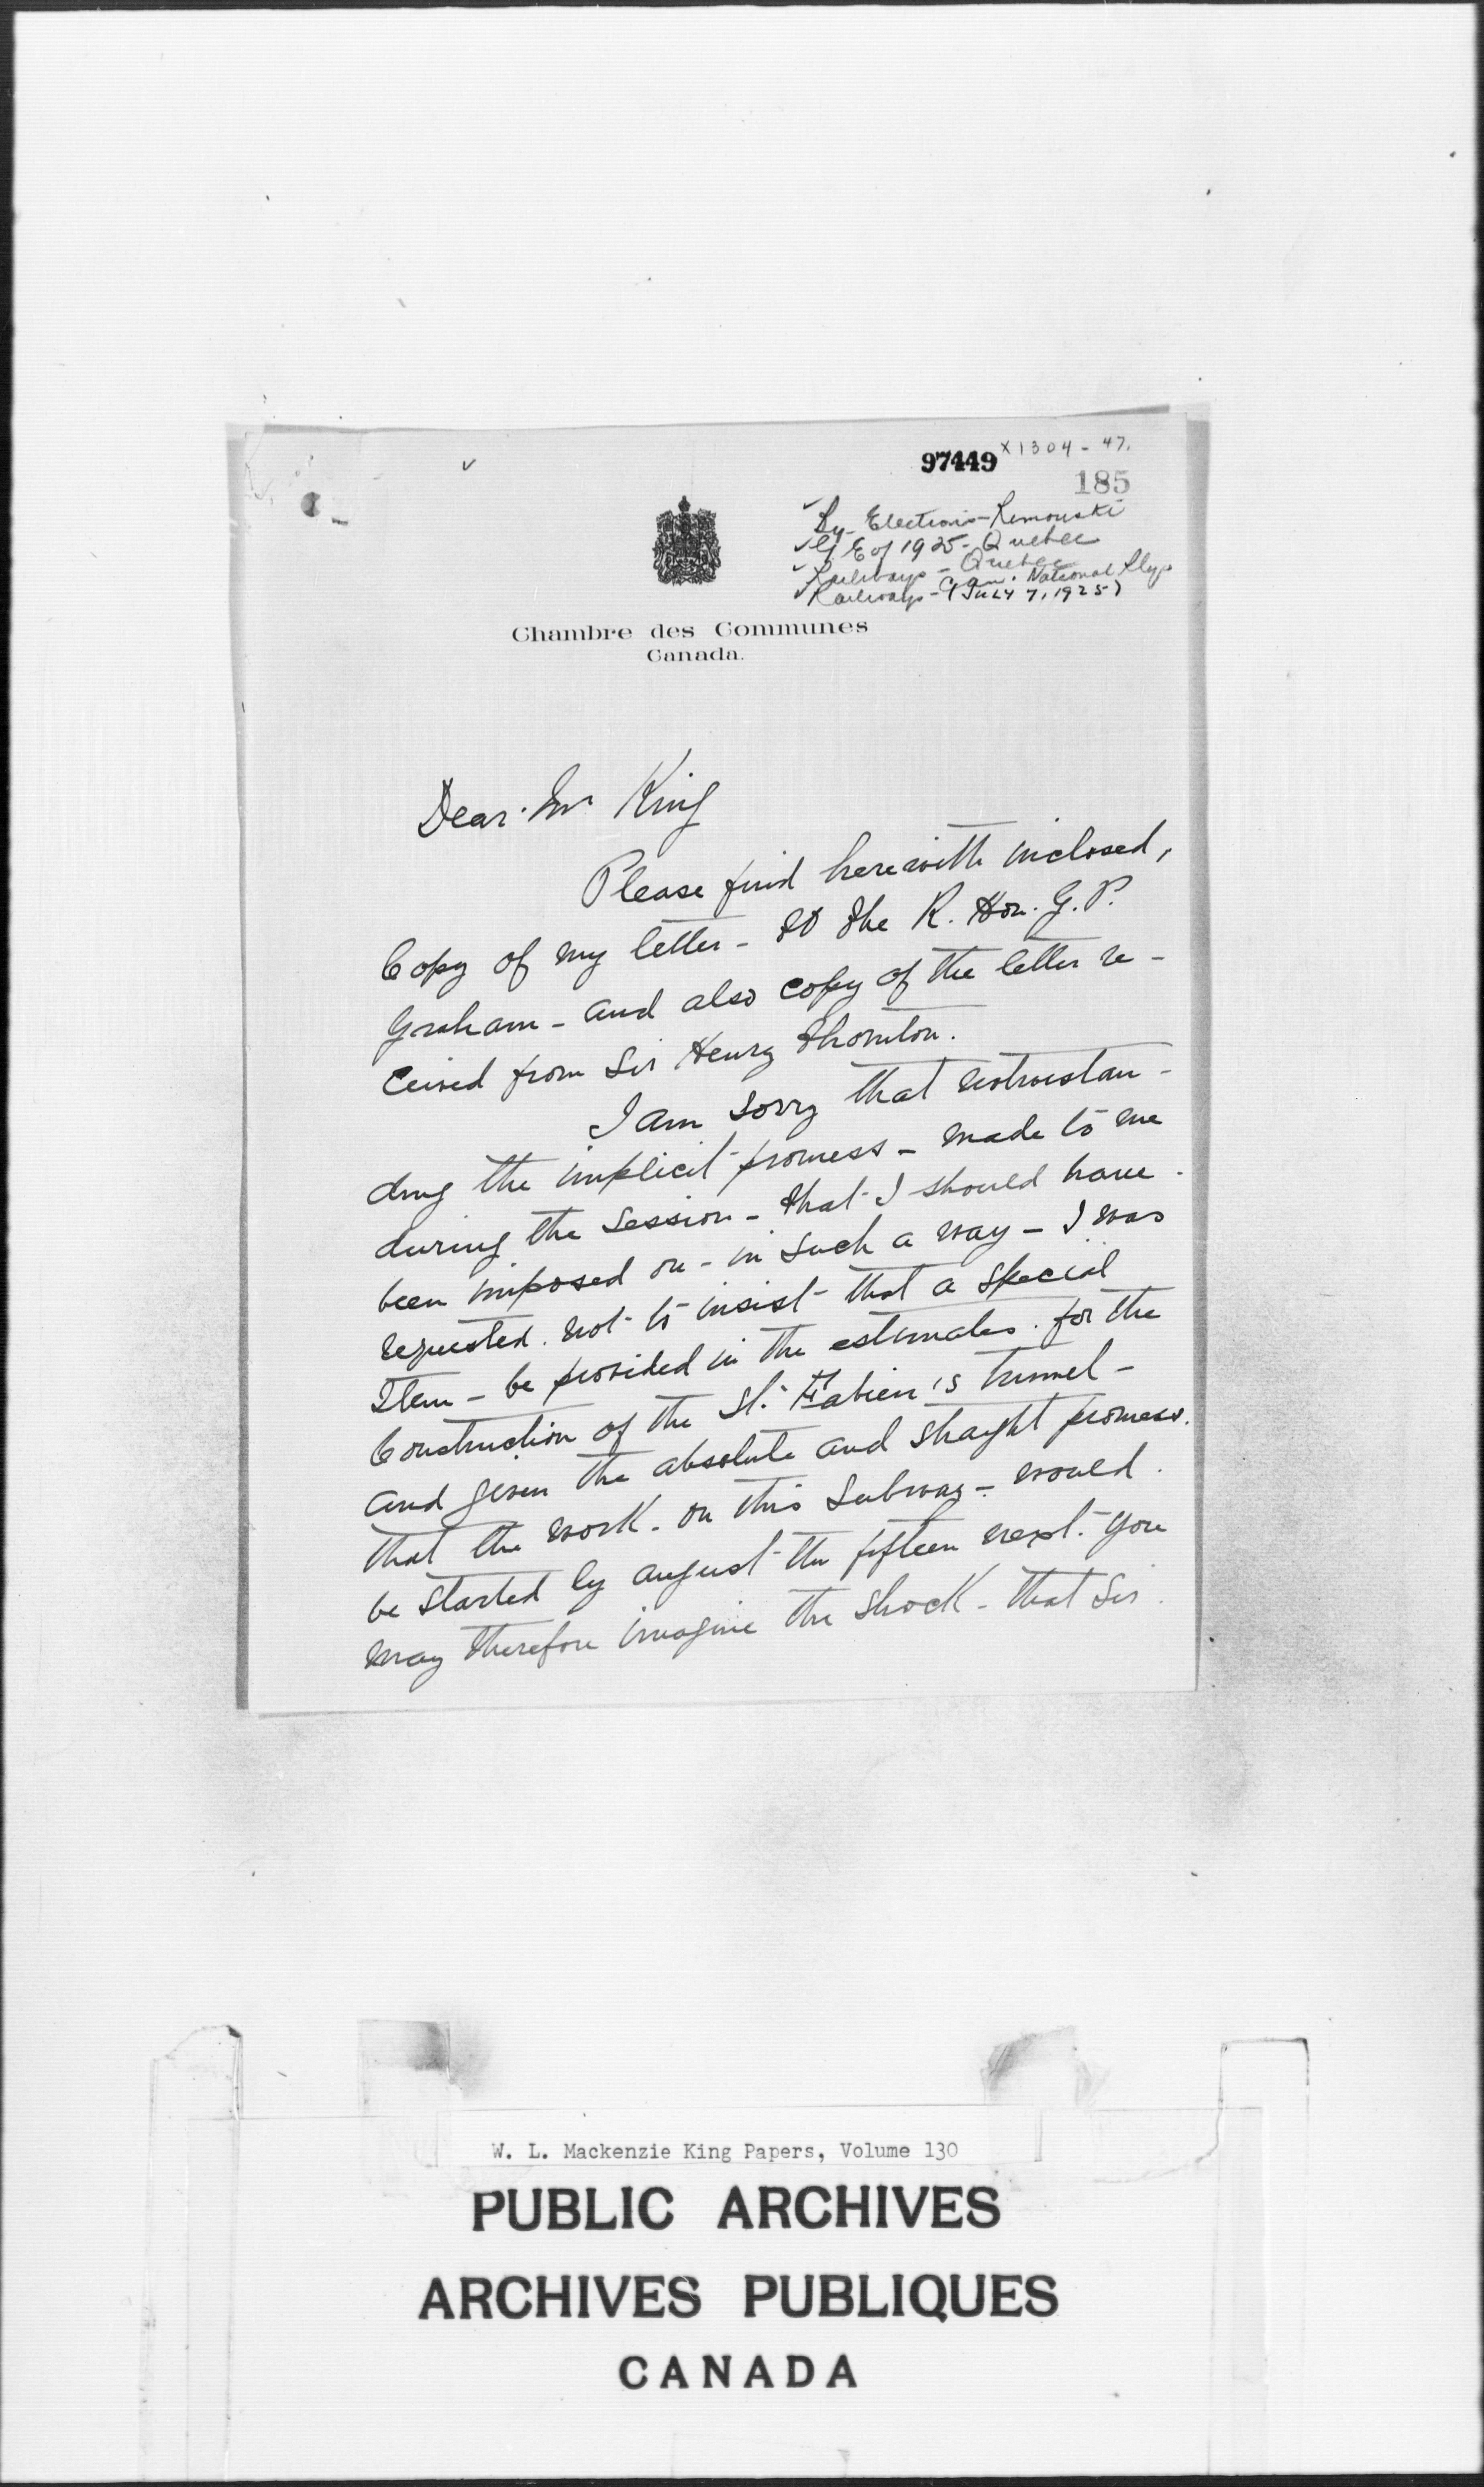 97449 X1304-47.
185
By-Elections-Rimouski
G E of 1925-Quebec
Railways-Quebec
Railways-Can. National Rlys
(July 7, 1925)
Chambre des Communes
Canada.
Dear Mr King
Please find herewith inclosed,
Copy of my letter - to the R. Hon. G. P.
Graham - and also copy of the letter re-
ceived from Sir Henry Thornton.
I am sorry that notwistan-
ding the implicit promess - made to me
during the Session - that I should have
been imposed on - in such a way - I was
requested not to insist that a special
Item - be provided in the estimates for the
Construction of the St. Fabien's tunnel -
and given the absolute and straght promess
that the work - on this Subway - would
be started by august the fifteen next. you
may therefore imagine the shock - that Sir
W. L. Mackenzie King Papers, Volume 130
PUBLIC ARCHIVES
ARCHIVES PUBLIQUES
CANADA